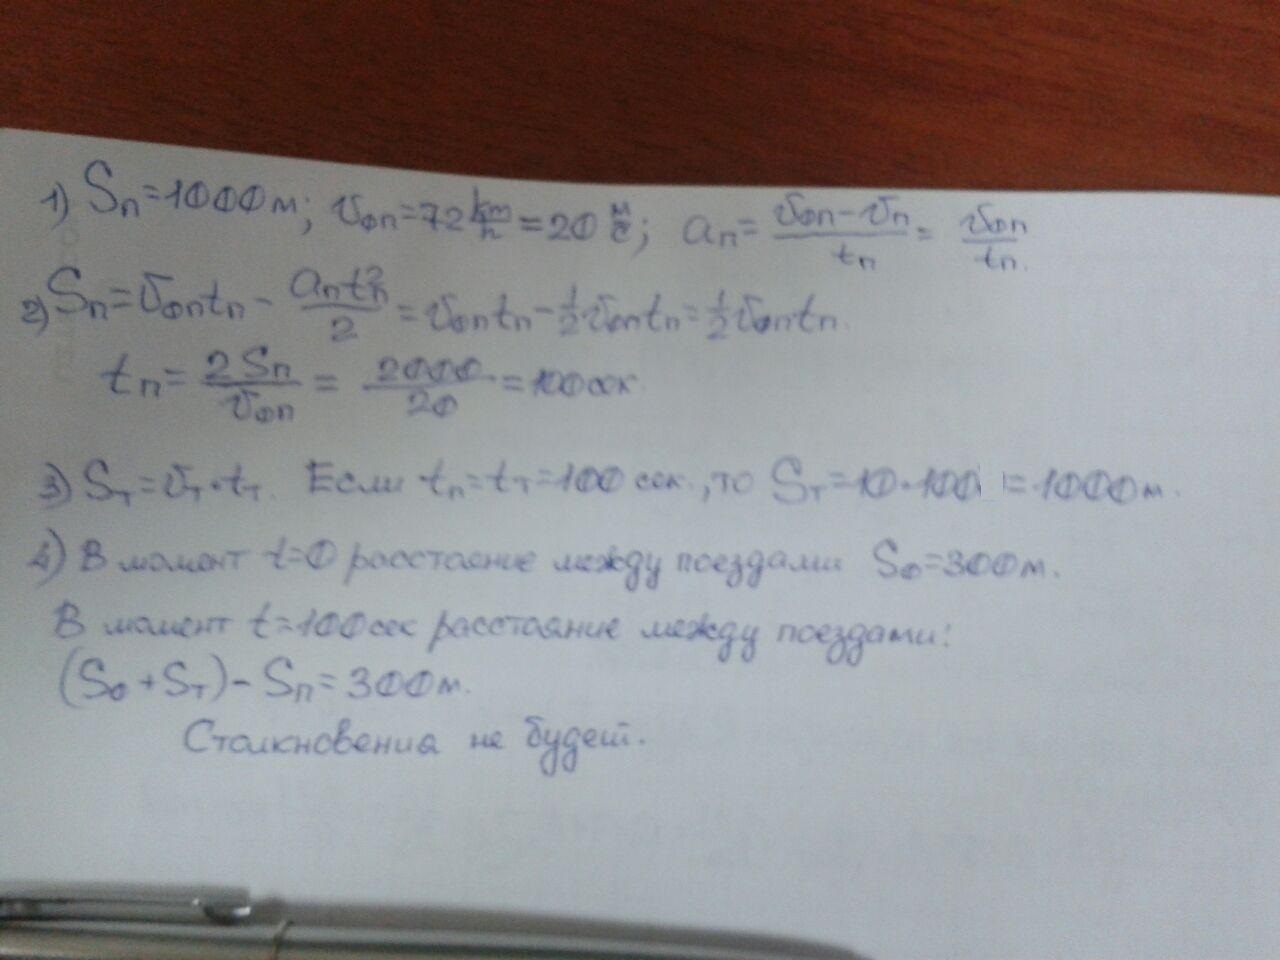 1) Sп=1000м; v₀п=72 km/h=20 м/с; aп=(v₀п-vп)/tп=v₀п/tп.
2) Sп=v₀пtп-aпtп²/2=v₀пtп-½v₀пtп=½v₀пtп.
tп=2Sп/v₀п=2000/20=100сек
3) Sт=vт·tт. Если tп=tт=100 сек., то Sт=10·100=1000м.
4) В момент t=0 расстояние между поездами S₀=300м.
В момент t=100сек расстояние между поездами:
(S₀+Sт)-Sп=300м.
Столкновения не будет.